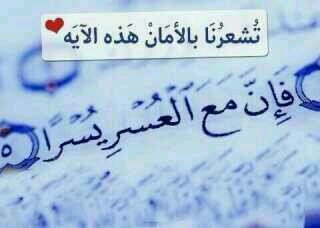 تُشعرُنَا بالأمَانْ هَذه الآيَه
فَإِنَّ مَعَ ٱلْعُسْرِ يُسْرًا ٥